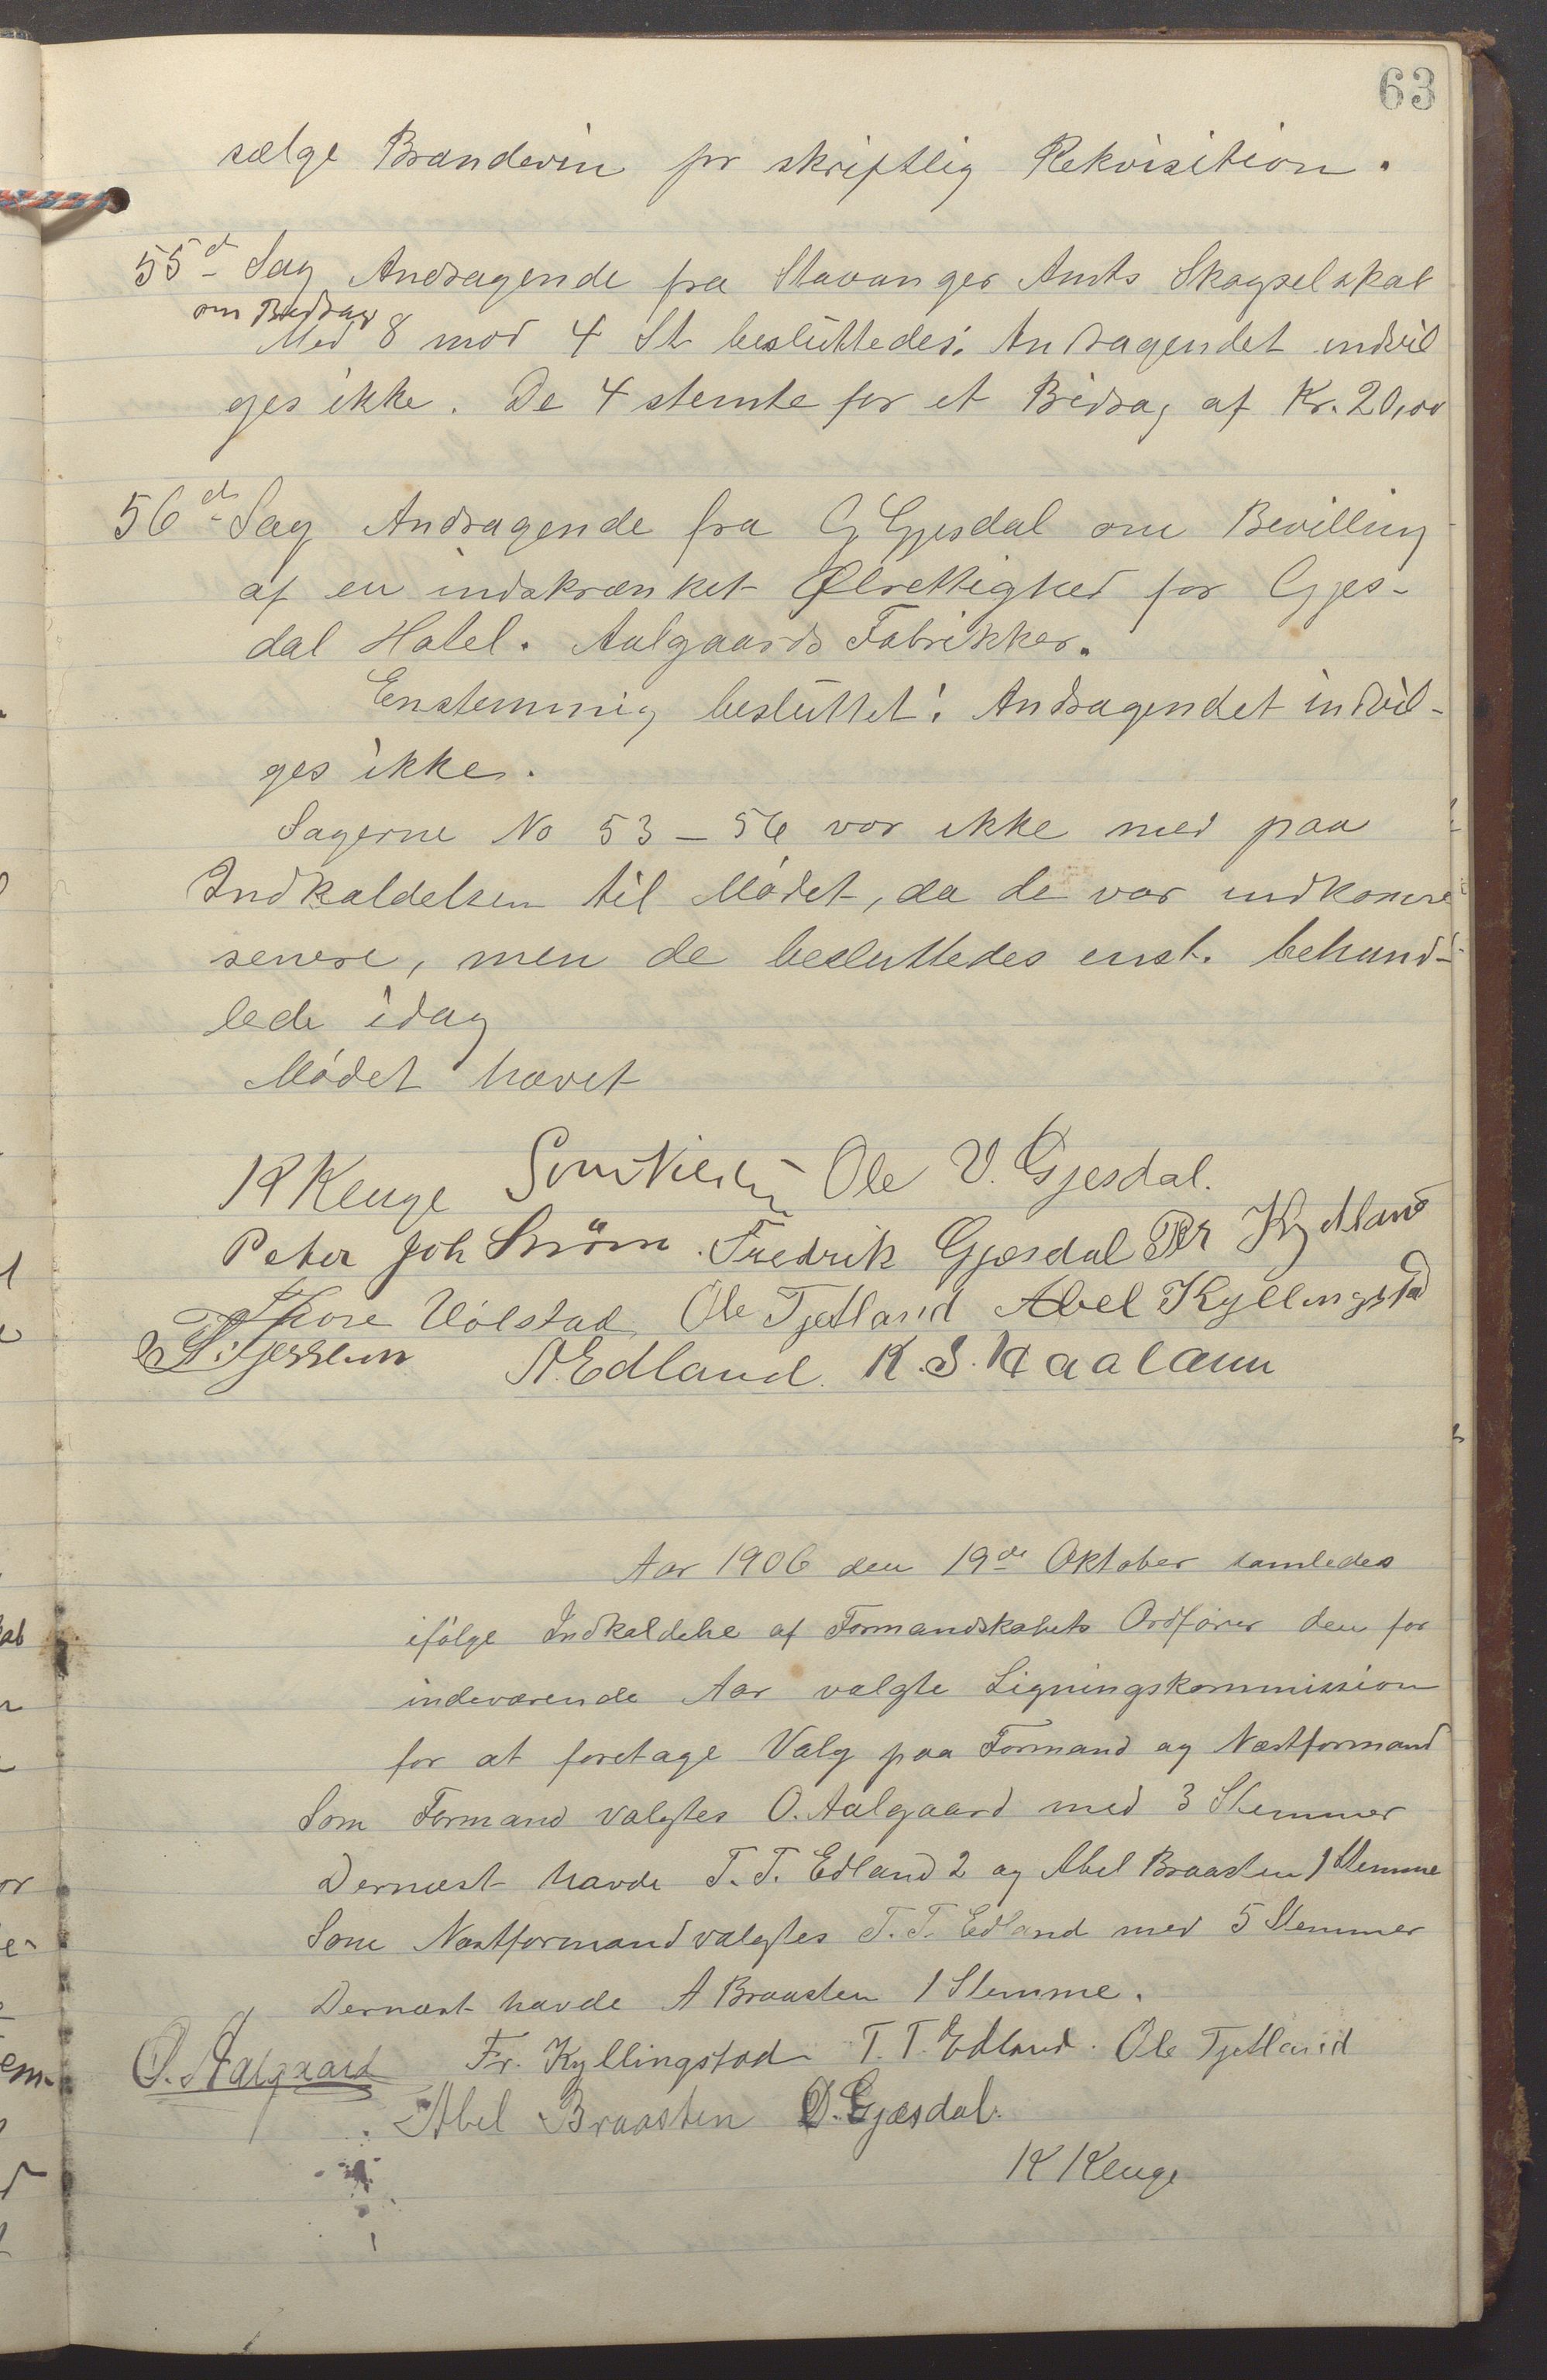 63
sælge Brændevin pr skriftlig Rekvisition.
55d Sag Andragende fra Stavanger Amts Skogselskab
om Bidrag
Med 8 mod 4 St besluttedes: Andragendet indvil
ges ikke. De 4 stemte for et Bidrag af Kr. 20,00
56de Sag Andragende fra G Gjesdal om Bevilling
af en indskrænket Ølrettighed for Gjes-
dal Hotel. Aalgaards Fabrikker.
Enstemmig besluttet: Andragendet indvil-
ges ikke.
Sagerne No 53 – 56 var ikke med paa
Indkaldelsen til Mødet, da de var indkomne
senere, men de besluttedes enst. behand-
lede idag
Mødet hævet
K Kenge Ole V. Gjesdal.
Peter Joh Ström. Fredrik Gjesdal Kydland
Thore Ølstad Ole Tjetland Abel Kyllingstad
A. Edland. K. S. Haaland
Aar 1906 den 19de Oktober samledes
ifølge Indkaldelse af Formandskabets Ordfører den for
indeværende Aar valgte Ligningskommission
for at foretage Valg paa Formand og Næstformand
Som Formand valgtes O. Aalgaard med 3 Stemmer
Dernæst havde T. T. Edland 2 og Abel Braasten 1 Stemme
Som Næstformand valgtes T. T. Edland med 5 Stemmer
Dernæst havde A Braasten 1 Stemme.
O. Aalgaard Fr. Kyllingstad T. T. Edland. Ole Tjetland
Abel Braasten O. Gjæsdal.
K Kenge